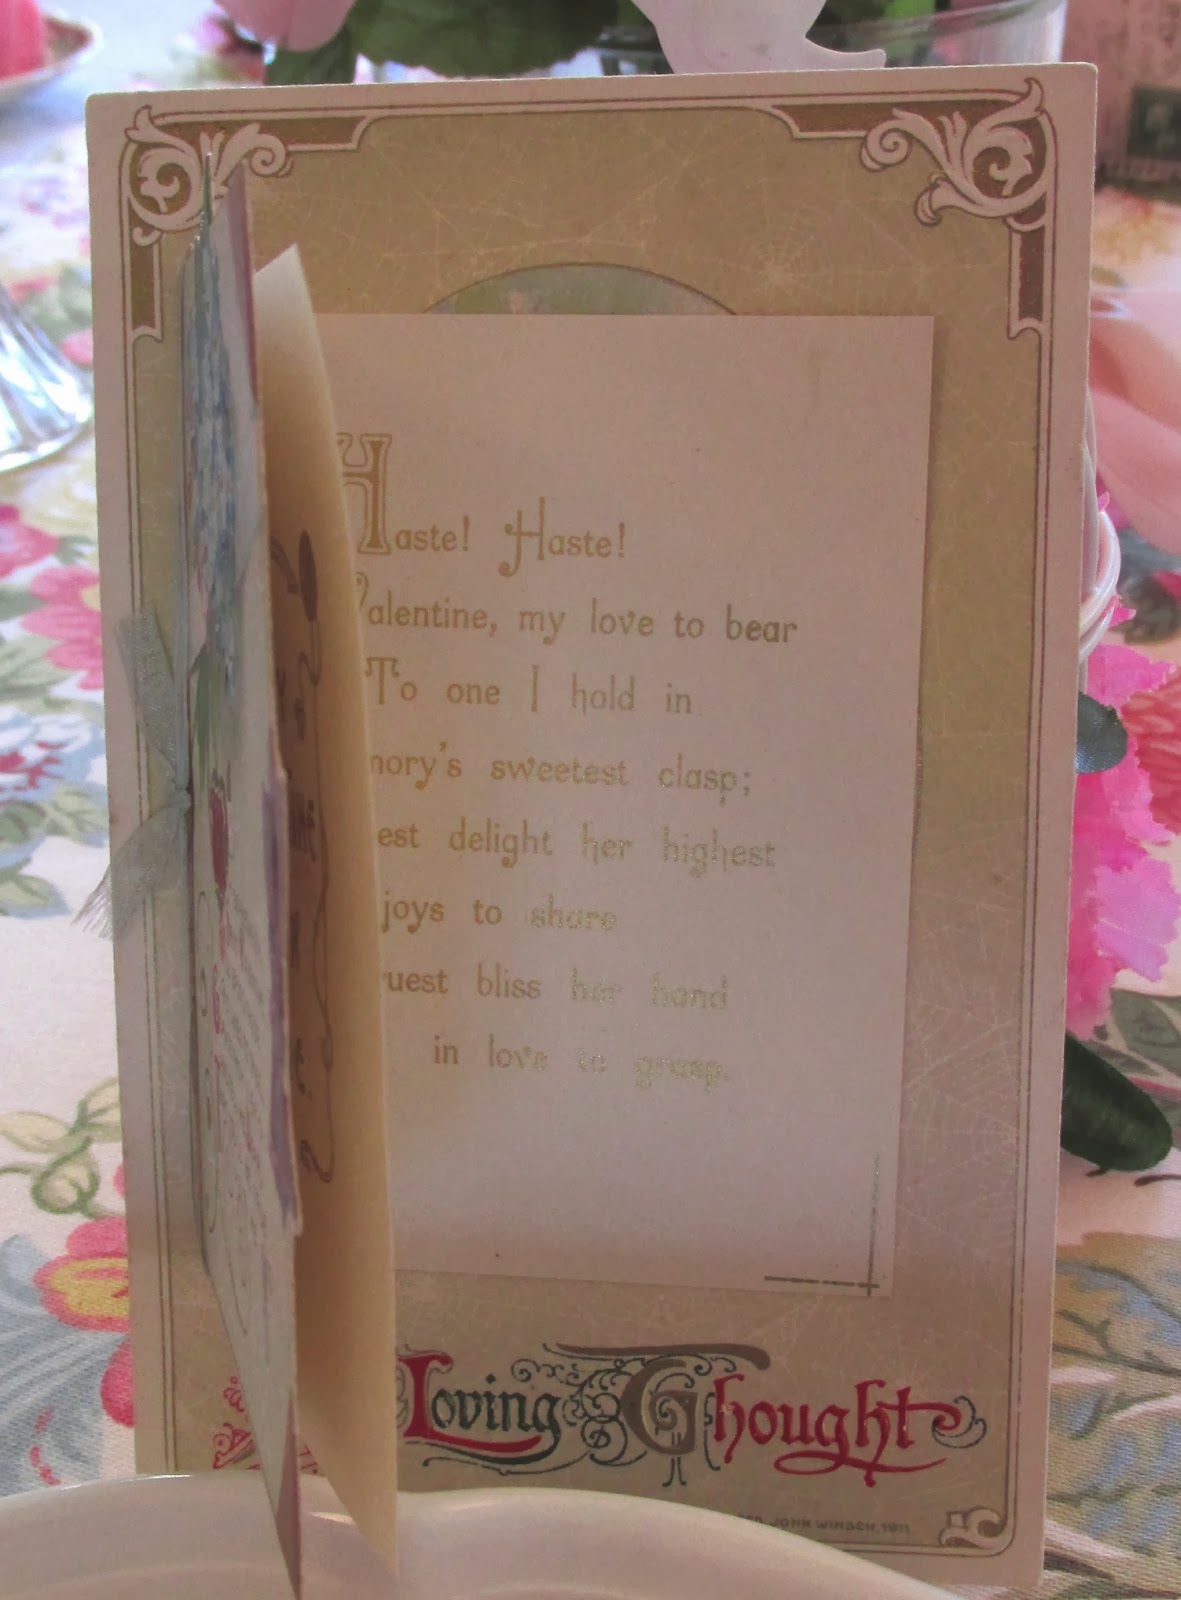 Haste! Haste!
Valentine, my love to bear
To one I hold in
mory's sweetest clasp;
est delight her highest
joys to share
uest bliss her hand
in love to grasp.
Loving Thought
JOHN WINSCH, 1911